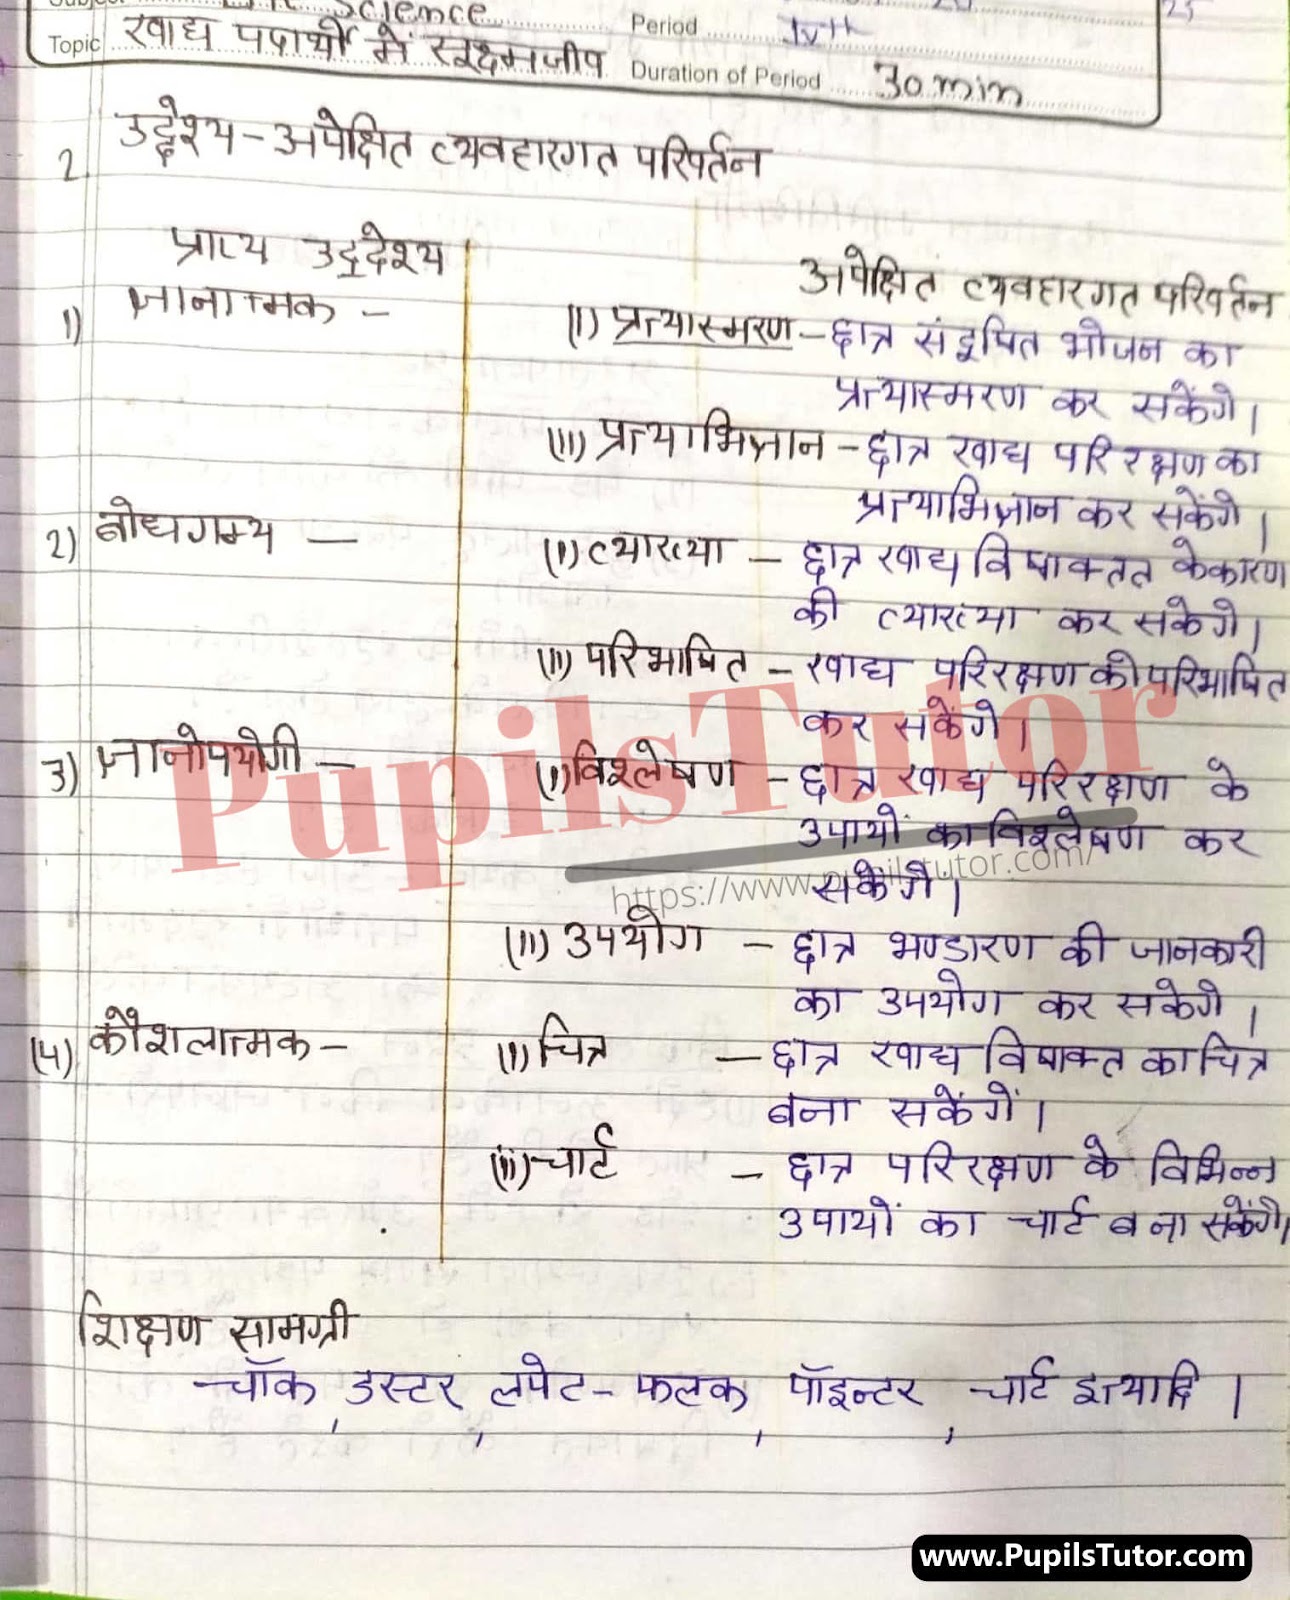 Science
Period IVth
Topic खाद्य पदार्थों में सूक्ष्मजीव
Duration of Period 30 min
2 उद्देश्य - अपेक्षित व्यवहारगत परिवर्तन
प्राप्य उद्देश्य
अपेक्षित व्यवहारगत परिवर्तन
1) ज्ञानात्मक -
(I) प्रत्यास्मरण - छात्र संदूषित भोजन का
प्रत्यास्मरण कर सकेंगे।
(II) प्रत्याभिज्ञान - छात्र खाद्य परिरक्षण का
प्रत्याभिज्ञान कर सकेंगे।
2) बोधगम्य -
(I) व्याख्या - छात्र खाद्य विषाक्तत के कारण
की व्याख्या कर सकेगे।
(II) परिभाषित - खाद्य परिरक्षण को परिभाषित
कर सकेंगे।
3) ज्ञानोपयोगी -
(I) विश्लेषण - छात्र खाद्य परिरक्षण के
उपायों का विश्लेषण कर
सकेगे।
(II) उपयोग - छात्र भण्डारण की जानकारी
का उपयोग कर सकेगे।
(4) कौशलात्मक -
(I) चित्र - छात्र खाद्य विषाक्त का चित्र
बना सकेंगें।
(II) चार्ट - छात्र परिरक्षण के विभिन्न
उपायों का चार्ट बना सकेंगे।
शिक्षण सामग्री
चॉक, डस्टर, लपेट-फलक, पॉइन्टर, चार्ट इत्यादि।
PupilsTutor
https://www.pupilstutor.com/
www.PupilsTutor.com